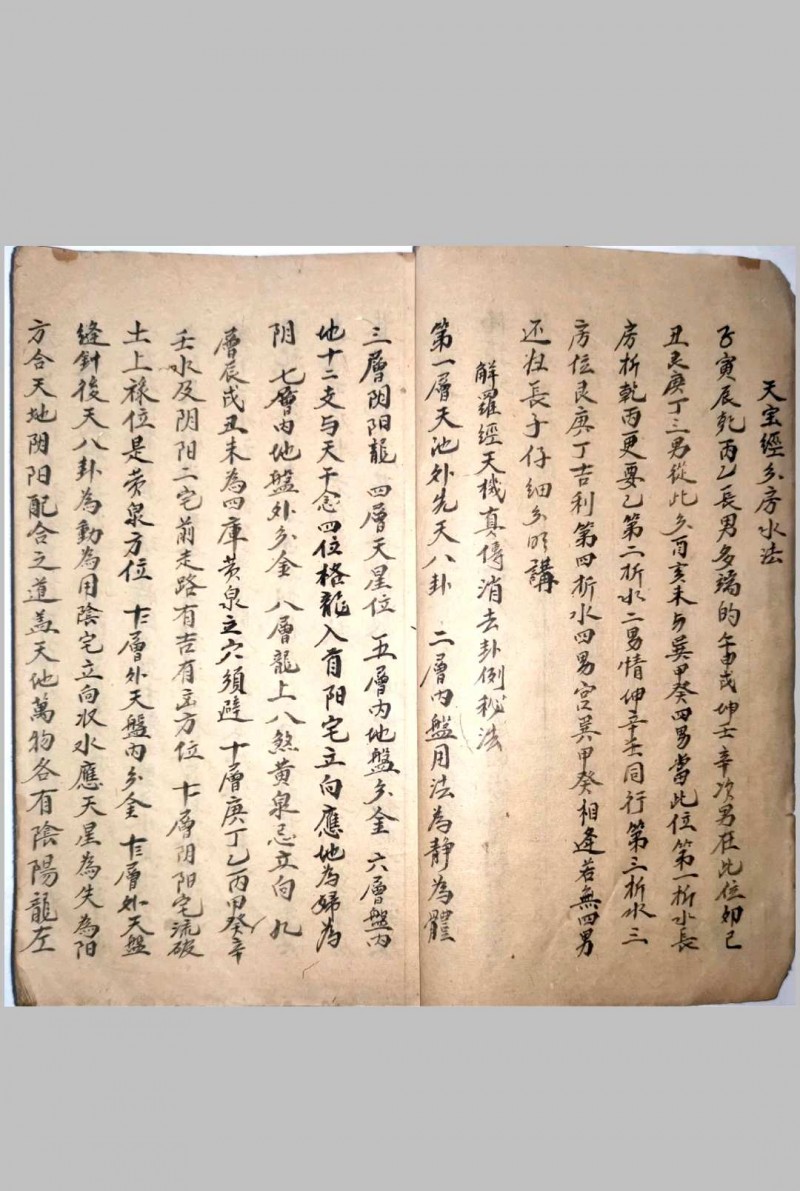 天宝經分房水法
子寅辰乾丙乙長男多瑞的午申戌坤壬辛次男在此位卯巳
丑艮庚丁三男從此分酉亥未与巽甲癸四男當此位第一折水長
房折乾丙更要乙第二折水二男情坤辛壬同行第三折水三
房位艮庚丁吉利第四折水四男宫巽甲癸相逢若無四男
还归長子仔細分明講
解羅經天機真傳消去卦例秘法
第一層天池外先天八卦 二層內盤用法為靜為體
三層阴阳龍 四層天星位 五層内地盤分金 六層盤内
地十二支与天干念四位格龍入首阳宅立向應地為婦為
阴 七層内地盤外分金 八層龍上八煞黄泉忌立向 九
層辰戌丑未為四庫黄泉立穴須避 十層庚丁乙丙甲癸辛
壬水及阴阳二宅前走路有吉有凶方位 十一層阴阳宅流破
土上祿位是黄泉方位 十二層外天盤内分金 十三層外天盤
縫針後天八卦為動為用陰宅立向収水應天星為失為阳
方合天地阴阳配合之道盖天地萬物各有陰陽龍左